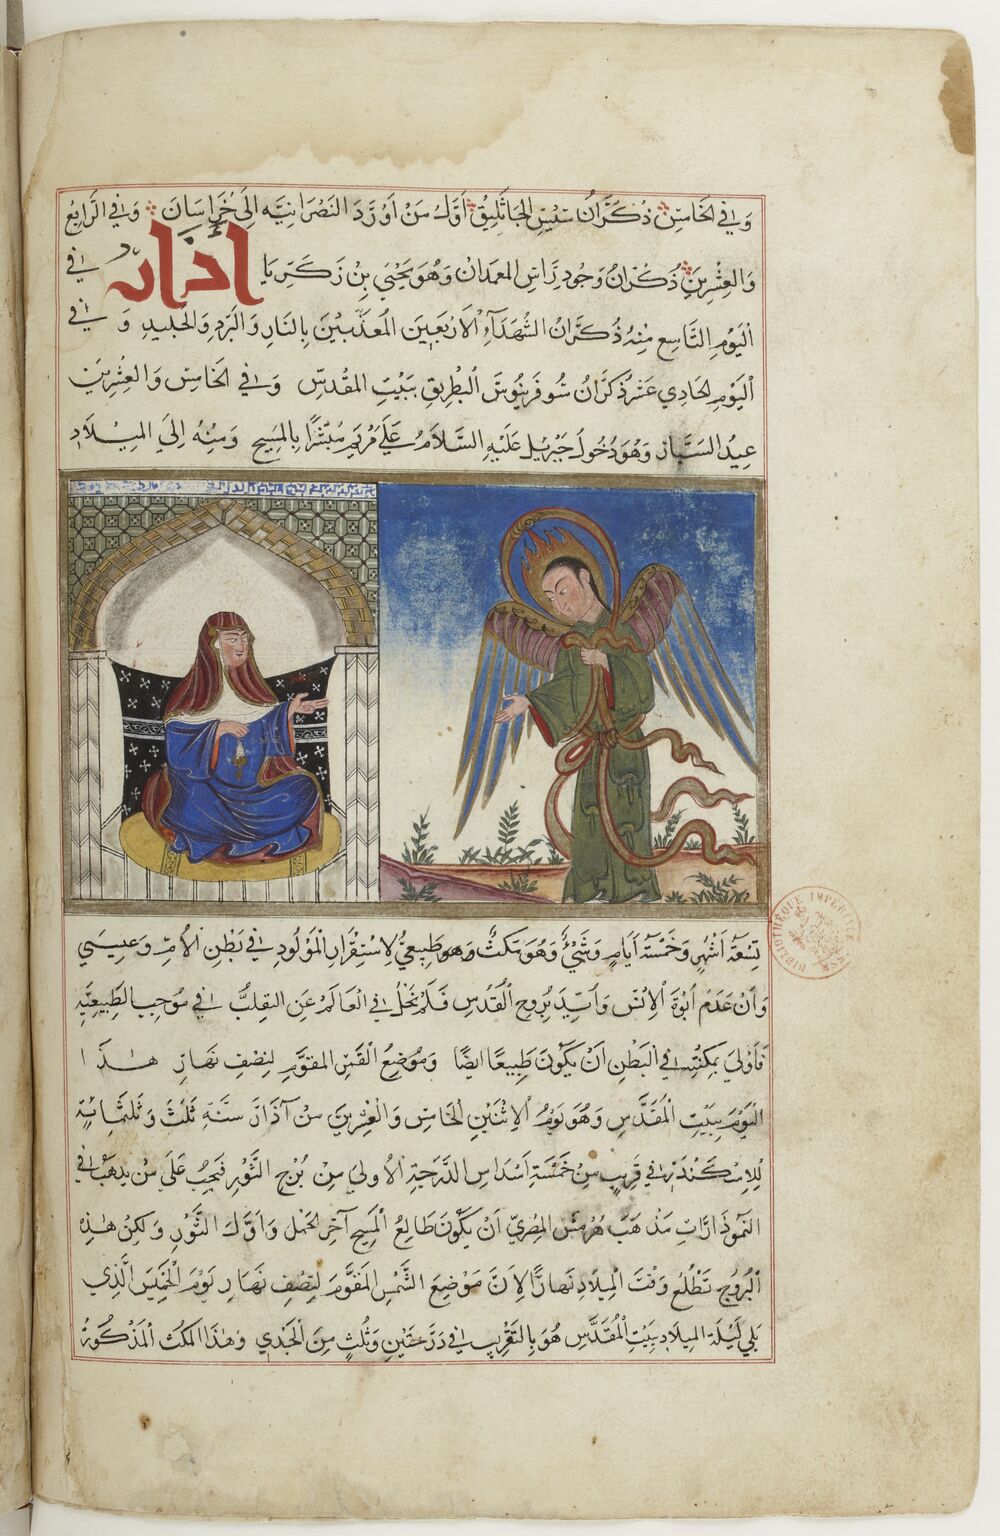 وَفي الخَامِسِ ذُكْرَانُ سِيسِ الجَاثَلِيقِ اَوَّلُ مَنْ اَوْرَدَ النَصْرَانِيَّه اِلَى خُرَاسَانَ وَفي الرَّابِعِ
وَالعِشْرِينَ ذُكْرَانُ وَجُودِ رَاسِ المعمدَان وَهُوَ يَحْيَى بِنْ زَكَرِيَا اذار في
اليَوْمِ التَّاسِعِ مِنهُ ذُكْرَانُ الشُهَدَآءِ الاَرْبَعِينَ المُعَذَّبِينَ بِالنَارِ وَالبَردِ وَالجَلِيدِ وَ في
اليَوْمِ الحَادِي عَشَر ذُكرَانُ سُوفَرنيُوسَ البَطْرِيقِ ببَيْتِ المقْدِسِ وَفي الخَامِسِ وَالعِشْرِينَ
عِيدُ السَبَّارِ وَهُوَ دُخُولُ جِبْرِيلَ عَلَيْهِ السَّلاَمُ عَلَى مَرْيَمَ مُبَشِّرًا بِالمَسِيحِ وَمِنْهُ اِلىَ المِيْلاَدِ
تِسْعَةُ اَشْهُرٍ وَخَمْسَةُ اَيَّامٍ وَشَيْءٌ وَهُوَ مَكثٌ وَهو طَبِيعِيٌّ لِاسْتِقْرَارِ الْمَوْلُودِ في بَطْنِ الاُمِّ وَعِيسَى
وَاَنْ عَدِمَ اُبُوَّةَ الاِنْسِ وَاُيِّدَ بِرُوحِ القُدُسِ فَلَمْ يَخْلُ في العَالَمِ عَنِ التَقلُّبِ في مُوجِبِ الطَبِيعَةِ
فَاَوْلىَ بمَكْثِهِ في البَطْنِ اَنْ يَكُونَ طَبِيعًا ايضًا وَمَوْضِعُ القَمَرِ المقَوَّمِ لِنِصْفِ نَهَارِ هٰذَا
اليَوْمَ بِبَيْتِ المُقَدَّسِ وَهُوَ يَوْمُ الاِثْنَيْنِ الخَامِسِ وَالعِشْرِينَ مِنْ آذَارَ سَنَةِ ثَلَثَ وَثَلَثِمَائِةٍ
لِلاِسْكَنْدَر في قَرِيبٍ مِنْ خَمْسَةِ اَسْدَاسِ الدَّرَجَةِ الاُولىَ مِنْ بُرْجِ الثَّوْرِ فيَجِبُ عَلَى مَنْ يَذهَبُ في
النُمُوذَارَاتِ مَذهَبَ هُرْمُسَ المِصْرِيّ اَنْ يَكُونَ طَالِعُ الْمَسِيحِ آخِرَ الحَمَلِ وَاَوَّلَ الثَّوْرِ وَلكِنْ هٰذِهِ
البُرُوجَ تَطْلُعُ وَقْتَ المِيلاَدِ نَهَارًا لِاَنَّ مَوْضِعَ الشَّمْسِ المقَوَّمَ لِنِصْفِ نَهَارِ يَوْمَ الْخَمِيسِ الَّذِي
يَلِي لَيْلَةَ المِيلاَدِ بِبَيْتِ المُقَدَّسِ هُوَ بِالتَقْرِيبِ في دَرَجَتَيْنِ وَثُلُثٍ مِنَ الجَدْيِ وَهٰذَا المكثُ المَذْكُورُ